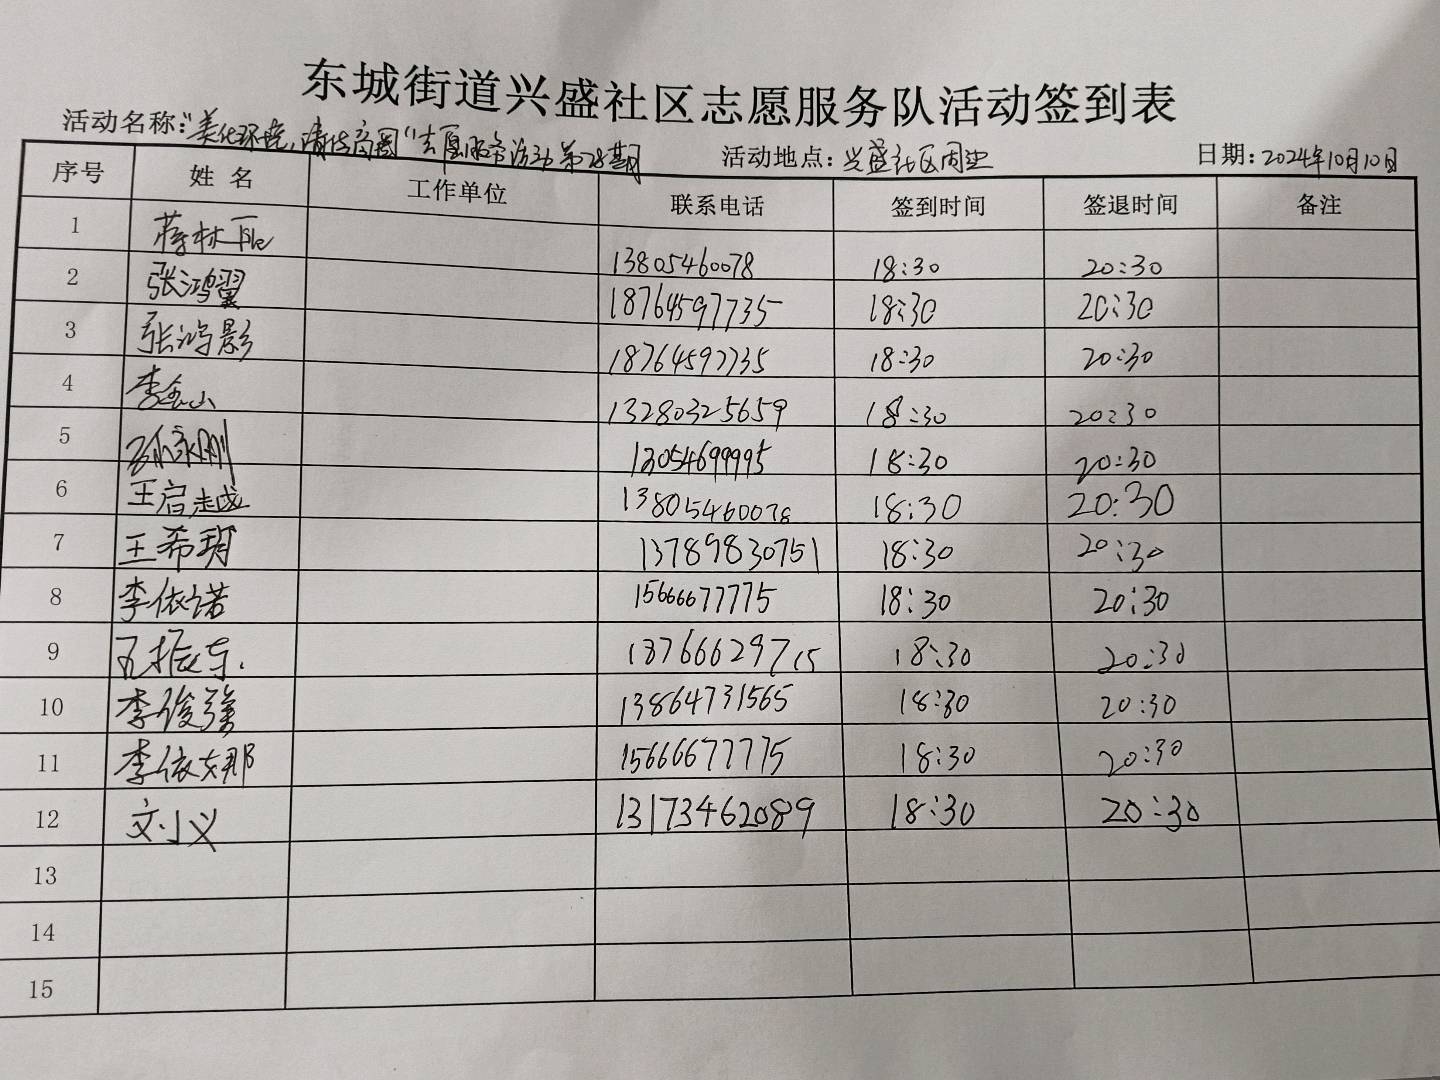 东城街道兴盛社区志愿服务队活动签到表
活动名称:“美化环境,清洁商圈”志愿服务活动第28期 活动地点:兴盛社区周边 日期:2024年10月10日
序号 姓名 工作单位 联系电话 签到时间 签退时间 备注
1 蒋林 13805460078 18:30 20:30
2 张鸿翼 18764597735 18:30 20:30
3 张鸿影 18764597735 18:30 20:30
4 李金山 13280325659 18:30 20:30
5 孙永刚 13054699995 18:30 20:30
6 王启越 13805460078 18:30 20:30
7 王希玥 13789830751 18:30 20:30
8 李依诺 15666677775 18:30 20:30
9 孔振东. 13766629715 18:30 20:30
10 李俊强 13864731565 18:30 20:30
11 李依娜 15666677775 18:30 20:30
12 刘义 13173462089 18:30 20:30
13
14
15